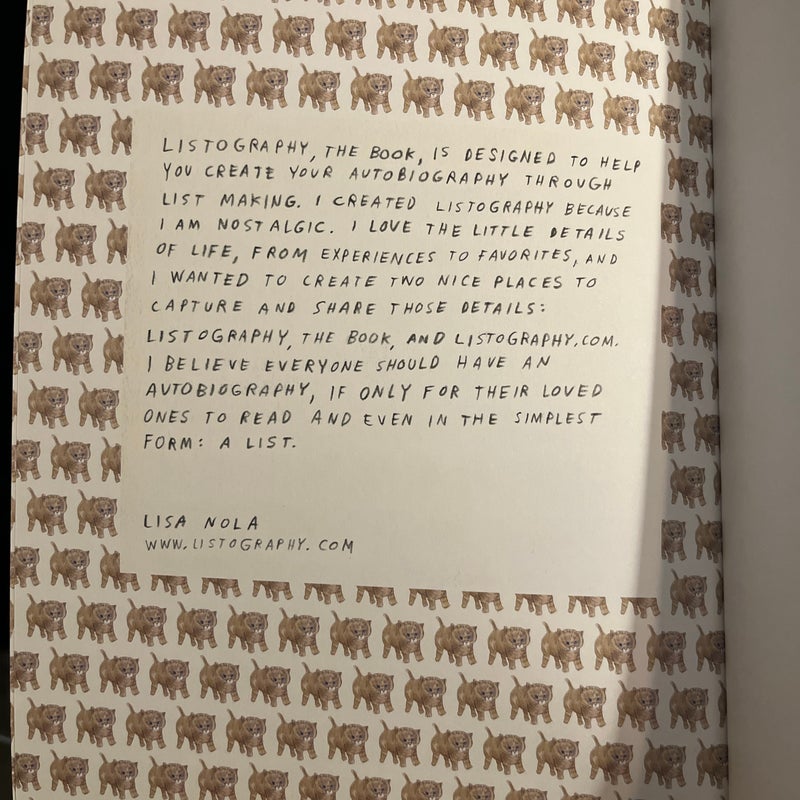 LISTOGRAPHY, THE BOOK, IS DESIGNED TO HELP
YOU CREATE YOUR AUTOBIOGRAPHY THROUGH
LIST MAKING. I CREATED LISTOGRAPHY BECAUSE
I AM NOSTALGIC. I LOVE THE LITTLE DETAILS
OF LIFE, FROM EXPERIENCES TO FAVORITES, AND
I WANTED TO CREATE TWO NICE PLACES TO
CAPTURE AND SHARE THOSE DETAILS:
LISTOGRAPHY, THE BOOK, AND LISTOGRAPHY.COM.
I BELIEVE EVERYONE SHOULD HAVE AN
AUTOBIOGRAPHY, IF ONLY FOR THEIR LOVED
ONES TO READ AND EVEN IN THE SIMPLEST
FORM: A LIST.
LISA NOLA
WWW.LISTOGRAPHY.COM